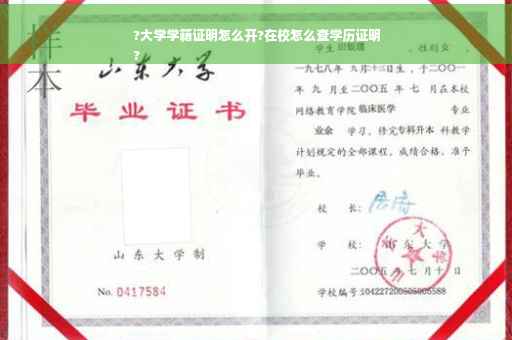 ?大学学籍证明怎么开?在校怎么查学历证明
?
样本
山东大学
毕业证书
山东大学制
No. 0417584
学生 性别女,
一九七八年 九月十二日生,于二〇〇一
年 九 月至二〇〇五 年 七 月在本校
网络教育学院 临床医学 专业
业余 学习,修完专科升本科教学
计划规定的全部课程,成绩合格,准予
毕业。
校 长:
学 校: 山东大学
二〇〇五 年 七 月 十 日
学校编号:104227200505005588